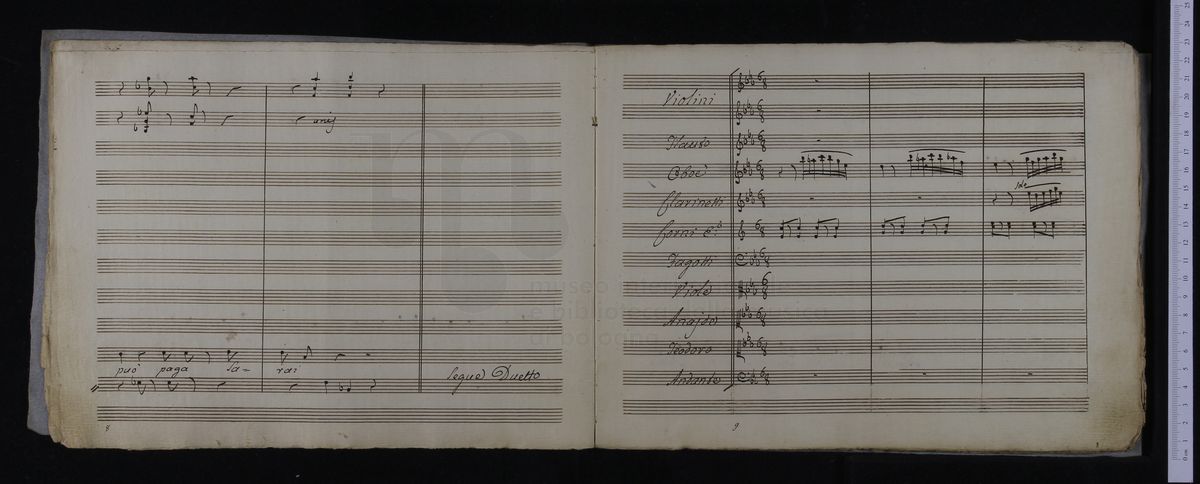 unis
può paga sa- rai
Segue Duetto
8
Violini
Flauto
Oboè
Clarinetti
Solo
Corni
Fagotti
Viole
Teodoro
Andante
9
museo internazionale
e biblioteca della musica
di bologna